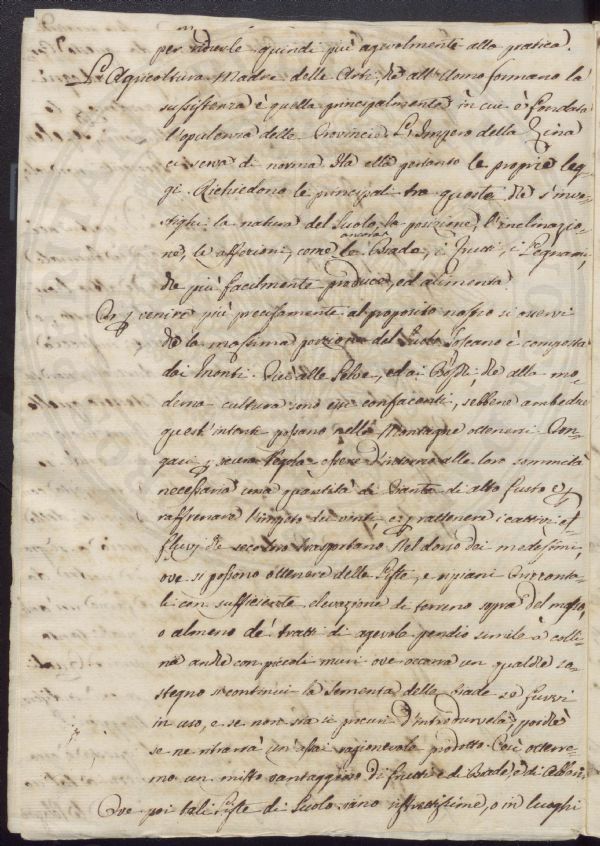 per ridurle quindi più agevolmente alla pratica.
L'Agricoltura Madre delle Arti, che all'Uomo formano la
sussistenza è quella principalmente in cui è fondata
l'opulenza delle Provincie. L'Impero della Cina
ci serva di norma. Ha ella pertanto le proprie leg-
gi. Richiedono le principali tra queste che s'inve-
stighi la natura del Suolo, la posizione, l'inclinazio-
ne, le affezioni, come ancora le Biade, i frutti, i Legnami,
che più facilmente produce, ed alimenta.
Or p venire più precisamente al proposito nostro si osservi
che la massima porzione del Suolo Toscano è composta
dai Monti. Che alle Selve, ed ai Boschi, che alla mo-
derna cultura sono essi confacenti, sebbene ambedue
quest'intenti possano nelle Montagne ottenersi.
p sicura Regola essere d'intorno alle loro sommità
necessaria una quantità di Piante di alto fusto e p
raffrenare l'impeto dei venti e p rattenere i cattivi ef-
fluvj che seco loro trasportano. Nel dorso dei medesimi,
ove si possono ottenere delle Piste, e ripiani Orizonta-
li con sufficiente elevazione di terreno sopra del masso,
o almeno de' tratti di agevole pendio simile à colli-
na anche con piccoli muri ove occorra un qualche so-
stegno si continui la sementa delle Biade se fuvvi
in uso, e se non sta si procuri d'introdurvela, poiché
se ne ritrarrà un assai ragionevole prodotto. Così otterre-
mo un misto vantaggioso di frutti e di Biade, o di Alberi.
Ove poi tali Piste di Suolo siano ristrettissime, o in luoghi